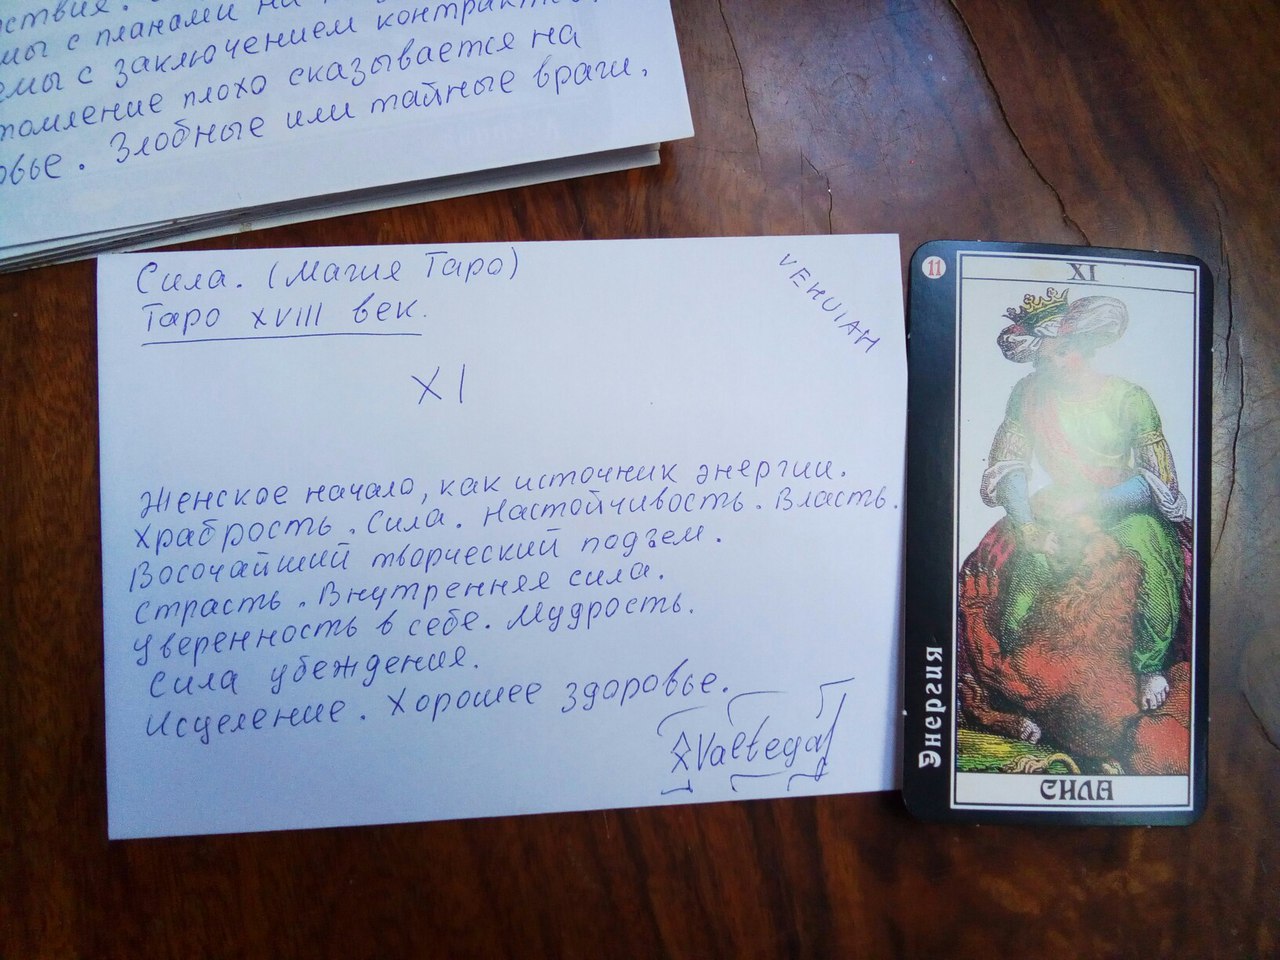 с планами на
с заключением контрактов.
плохо сказывается на
Злобные или тайные враги.
Сила. (Магия Таро)
Таро XVIII век.
VEHUIAH
XI
Женское начало, как источник энергии.
Храбрость. Сила. Настойчивость. Власть.
Восочайший творческий подзем.
Страсть. Внутренняя сила.
Уверенность в себе. Мудрость.
Сила убеждения.
Исцеление. Хорошее здоровье.
Valtegal
11
XI
Энергия
СИЛА